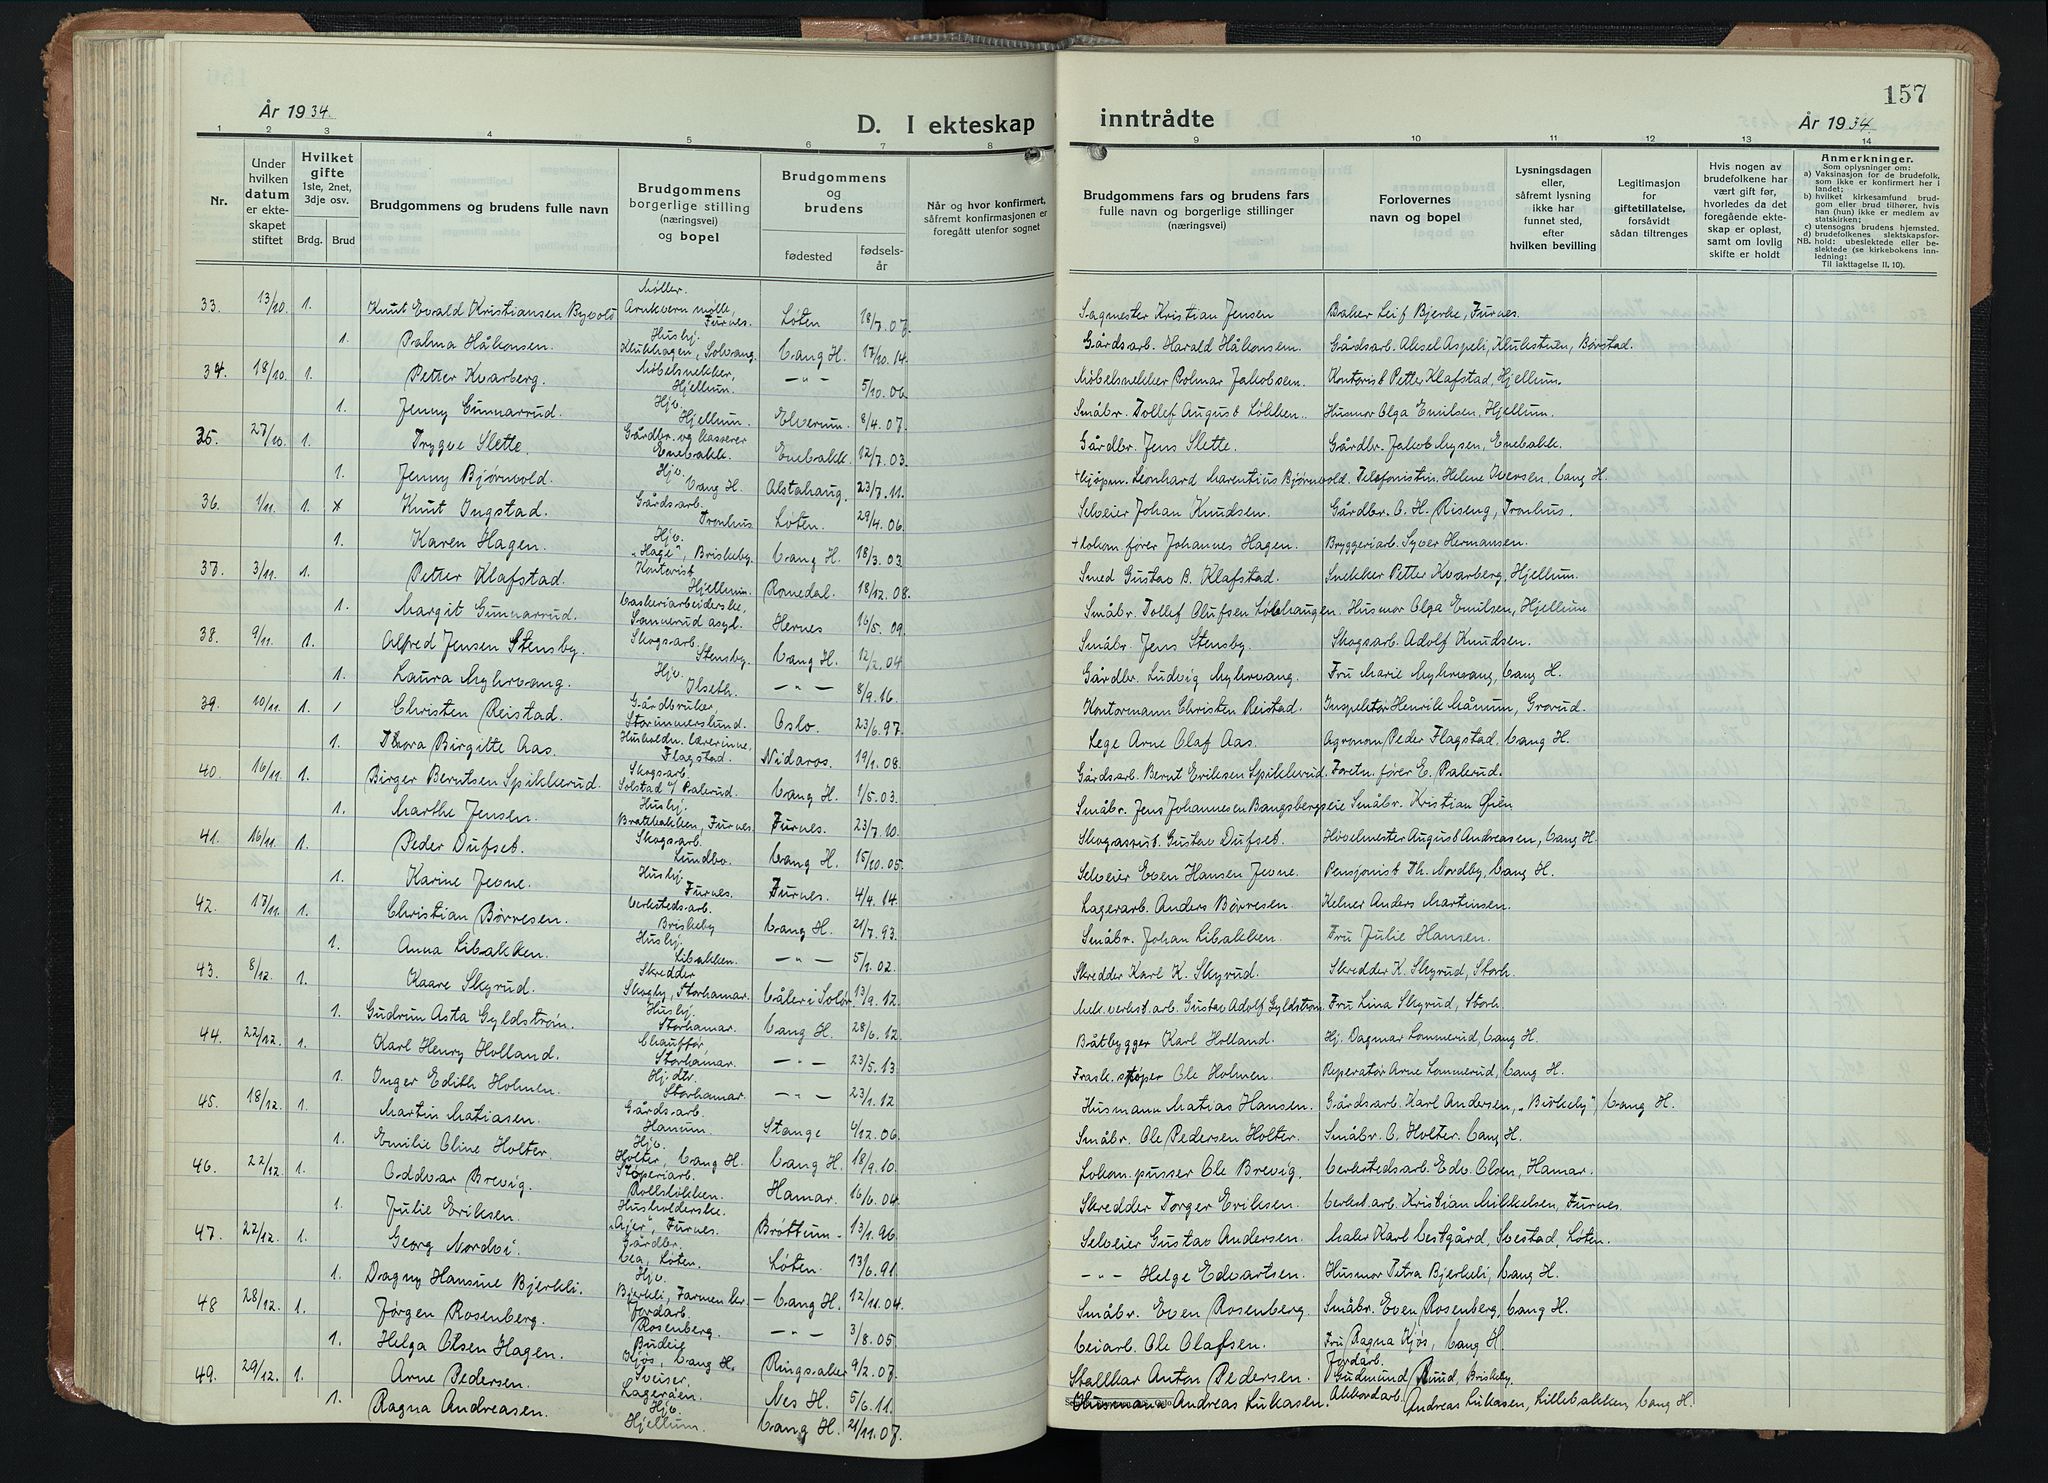 157
År 1934.
D. I ekteskap inntrådte
År 1934.
1 2 3 4 5 6 7 8 9 10 11 12 13 14
Nr.
Under hvilken datum er ekteskapet stiftet
Hvilket gifte 1ste, 2net, 3dje osv.
Brdg. Brud
Brudgommens og brudens fulle navn
Brudgommens borgerlige stilling (næringsvei) og bopel
Brudgommens og brudens
fødested
fødselsår
Når og hvor konfirmert, såfremt konfirmasjonen er foregått utenfor sognet
Brudgommens fars og brudens fars fulle navn og borgerlige stillinger (næringsvei)
Forlovernes navn og bopel
Lysningsdagen eller, såfremt lysning ikke har funnet sted, efter hvilken bevilling
Legitimasjon for giftetillatelse, forsåvidt sådan tiltrenges
Hvis nogen av brudefolkene har vært gift før, hvorledes da det foregående ekteskap er opløst, samt om lovlig skifte er holdt
Anmerkninger.
Som oplysninger om:
a) Vaksinasjon for de brudefolk, som ikke er konfirmert her i landet;
b) hvilket kirkesamfund brudgom eller brud tilhører, hvis han (hun) ikke er medlem av statskirken;
c) utensogns brudens hjemsted.
d) brudefolkenes slektskapsforhold: ubeslektede eller beslektede (se kirkebokens innledning:
NB. Til iakttagelse II, 10).
33. 13/10. 1. Knut Evald Kristiansen Byvold Møller. Arnkvern mølle, Furnes. Løten 18/7.07. Sagmester Kristian Jensen Baker Leif Bjerke, Furnes.
1. Palma Håkonsen. Hushj. Klukhagen, Solvang. Vang H. 17/10.14. Gårdsarb. Harald Håkonsen. Gårdsarb. Aksel Aspeli, Klukstuen, Børstad.
34. 18/10. 1. Petter Kvarberg. Møbelsnekker, Hjellum. — " — 5/10.06. Møbelsnekker Polmar Jakobsen. Kontorist Petter Klafstad, Hjellum.
1. Jenny Gunnarrud. Hjv. Hjellum. Elverum. 8/4.07. Småbr. Tollef August Løkken. Husmor Olga Emilsen, Hjellum.
35. 27/10. 1. Trygve Slette. Gårdbr. og kasserer Enebakk. Enebakk. 12/7.03. Gårdbr. Jens Slette. Gårdbr. Jakob Mysen, Enebakk.
1. Jenny Bjørnvold. Hjv. Vang H. Alstahaug. 23/7.11. + Kjøpm. Leonhard Marentius Bjørnvold. Telefonistin. Helene Iversen, Vang H.
36. 1/11. 1. x Knut Ingstad. Gårdsarb. Tronhus. Løten. 29/4.06. Selveier Johan Knudsen. Gårdbr. O. H. Riseng, Tronhus.
1. Karen Hagen. Hjv. "Hage", Briskeby. Vang H. 18/3.03. + Lokom. fører Johannes Hagen. Bryggeriarb. Syver Hermansen.
37. 3/11. 1. Petter Klafstad. Kontorist Hjellum. Romedal. 18/12.08. Smed Gustav B. Klafstad. Snekker Petter Kvarberg, Hjellum.
1. Margit Gunnarrud. Vaskeriarbeiderske, Sannerud asyl. Hernes 16/5.09. Småbr. Tollef Olufsen Løkhaugen. Husmor Olga Emilsen, Hjellum
38. 9/11. 1. Alfred Jensen Stensby. Skogsarb. Stensby. Vang H. 12/2.04. Småbr. Jens Stensby. Skogsarb. Adolf Knudsen.
1. Laura Myhrvang. Hjv. Ilseth. — " — 8/9.16. Gårdbr. Ludvig Myhrvang. Fru Marie Myhrvang, Vang H.
39. 10/11. 1. Christen Reistad. Gårdbruker, Storimmerslund. Oslo. 23/6.97. Kontormann Christen Reistad. Inspektør Henrik Månum, Grorud.
1. Thora Birgitte Aas. Husholdn. lærerinne. Flagstad. Nidaros. 19/1.08. Lege Arne Olaf Aas. Agronom Peder Flagstad, Vang H.
40. 16/11. 1. Birger Berntsen Spikkerud. Skogsarb. Solstad u/Palerud. Vang H. 1/5.03. Gårdsarb. Bernt Eriksen Spikkerud. Foretn. fører E. Palerud.
1. Marthe Jensen. Hushj. Bratbakken, Furnes. Furnes. 23/7.10. Småbr. Jens Johannesen Bangsbergseie Småbr. Kristian Øien
41. 16/11. 1. Peder Dufset. Skogsarb. Lundbo. Vang H. 15/10.05. Skogrestut. Gustav Dufset. Høvelmester August Andreasen, Vang H.
1. Karine Jevne. Hushj. Furnes. Furnes. 4/4.14. Selveier Even Hansen Jevne. Pensjonist Th. Nordby, Vang H.
42. 17/11. 1. Christian Børresen. Verkstedsarb. Briskeby Vang H. 21/7.93. Lagerarb. Anders Børresen. Kelner Anders Martinsen.
1. Anna Libakken. Hushj. Libakken. — " — 5/1.02. Småbr. Johan Libakken. Fru Julie Hansen.
43. 8/12. 1. Kaare Skyrud. Skredder Skogby, Storhamar. Våler i Solør. 13/9.12. Skredder Karl K. Skyrud. Skredder K. Skyrud, Storh.
1. Gudrun Asta Gyldstrøm. Hushj. Storhamar. Vang H. 28/6.12. Mek. verkst. arb. Gustav Adolf Gyldstrøm. Fru Lina Skyrud, Storh.
44. 22/12. 1. Karl Henry Holland. Chauffør Storhamar. — " — 23/5.13. Båtbygger Karl Holland. Hj. Dagmar Lommerud, Vang H.
1. Inger Edith Holmen. Hj. dtr. Storhamar. — " — 23/1.12. Fraskstøper Ole Holmen. Reperatør Arne Lommerud, Vang H.
45. 18/12. 1. Martin Matiasen. Gårdsarb. Hanum. Stange 4/12.06. Husmann Matias Hansen. Gårdsarb. Karl Andersen, "Birkeby" Vang H.
1. Emilie Oline Holter. Hjv. Holter, Vang H. Vang H. 18/9.10. Småbr. Ole Pedersen Holter. Småbr. O. Holter. Vang H.
46. 22/12. 1. Oddvar Brevig. Støperiarb. Rollsløkken. Hamar. 16/6.04. Lokom. pusser Ole Brevig. Verkstedsarb. Edv. Olsen, Hamar.
1. Julie Eriksen. Husholderske. "Ajer", Furnes. Brøttum. 13/1.96. Skredder Torger Eriksen. Verkst arb. Kristian Mikkelsen, Furnes.
47. 22/12. 1. Georg Nordvi. Gårdbr. Vea, Løten. Løten. 13/6.91. Selveier Gustav Andersen. Maler Karl Vestgård, Svestad, Løten.
1. Dagny Hansine Bjerkeli. Hjv. Bjerkeli, Farmen kr. Vang H. 12/11.04. — " — Helge Edvartsen. Husmor Petra Bjerkeli, Vang H.
48 28/12. 1. Jørgen Rosenberg. Jordarb. Rosenberg. — " — 3/8.05. Småbr. Even Rosenberg. Småbr. Even Rosenberg, Vang H.
1. Helga Olsen Hagen. Budeie Kjøs, Vang H. Ringsaker 9/2.07. Veiarb. Ole Olafsen. Fru Ragna Kjøs, Vang H.
49. 29/12. 1. Arne Pedersen. Sveiser. Lageråen. Nes H. 5/6.11. Stallkar Anton Pedersen. Jordarb. Gudmund Ruud, Briskeby.
1. Ragna Andreasen. Hjv. Hjellum. Vang H. 21/11.07. Husmann Andreas Lukasen. Akkordarb. Andreas Lukasen, Lillebakken, Vang H.